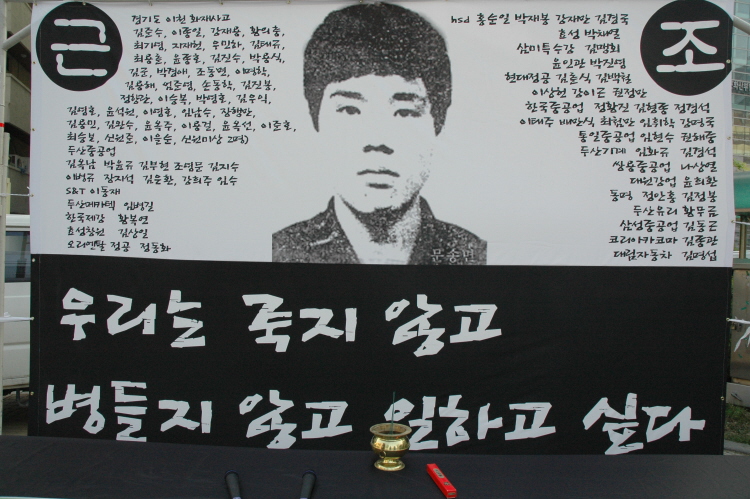 근
조
경기도 이천 화재사고
김준수, 이종일, 강재용, 황의충,
최가영, 지재헌, 우민하, 김태규,
최용춘, 윤종호, 김진수, 박용식,
김군, 박경애, 조동면, 이명학,
김용해, 엄준영, 손동학, 김진봉,
정향란, 이승복, 박영호, 김우익,
김영호, 윤석원, 이영호, 임남수, 장행만,
김용민, 김완수, 윤옥주, 이용걸, 윤옥선, 이준호,
최승복, 신원준, 이을순, 신원미상 2명)
두산중공업
김옥남 박윤규 김부현 조영문 김지수
이병규 장지석 김운환, 강희주 임수
S&T 이동재
두산메카텍 임병길
한국제강 황복연
효성창원 김상일
오리엔탈 정공 정동화
hsd 홍순일 박재봉 강재만 김경국
효성 박채열
삼미특수강 김맹회
윤인관 박진명
현대정공 김춘식 김박철
이상헌 강이근 권정만
한국중공업 정학진 김형중 정경석
이태주 배만식 최현만 임휘학 강명국
통일중공업 임현수 권해중
두산기계 임화규 김경석
쌍용중공업 나상열
대원강업 윤희환
동명 정안홍 김정봉
두산유리 황두금
삼성중공업 김동근
코리아카코마 김종관
대림자동차 김명섭
문송면
우리는 죽지 않고
병들지 않고 일하고 싶다